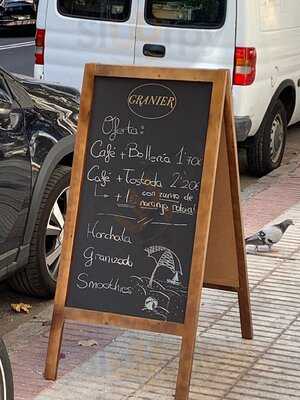 GRANIER
Oferta:
Café + Bollería 1'70€
Café + Tostada 2'20€
↳ + 1€ con zumo de
naranja natural
Horchata
Granizado
Smoothies